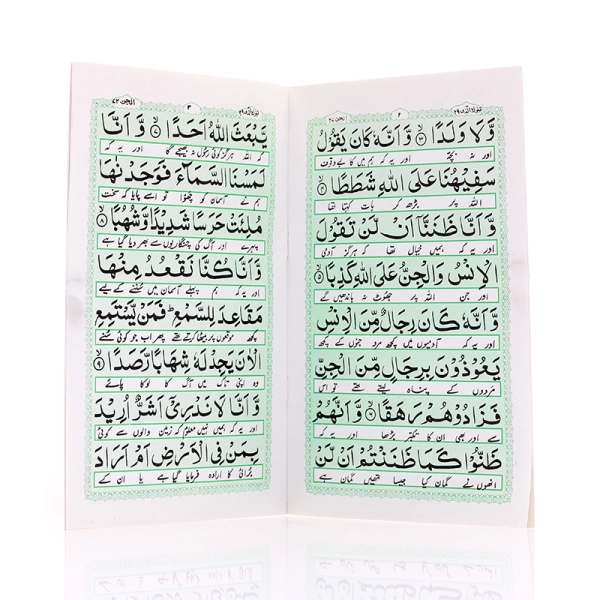 تبٰرک الذی ۲۹ ۲ الجن ۷۲
وَّلَا وَلَدًا ۙ۳ وَّاَنَّهٗ كَانَ يَقُوْلُ
اور نہ بچّہ اور یہ کہ ہم میں کا بے وقوف
سَفِيْهُنَا عَلَى اللّٰهِ شَطَطًا ۙ۴
اللہ پر بڑھ کر بات کہتا تھا
وَّاَنَّا ظَنَنَّآ اَنْ لَّنْ تَقُوْلَ
اور یہ کہ ہمیں خیال تھا کہ ہرگز آدمی
الْاِنْسُ وَالْجِنُّ عَلَى اللّٰهِ كَذِبًا ۙ۵
اور جن اللہ پر جھوٹ نہ باندھیں گے
وَّاَنَّهٗ كَانَ رِجَالٌ مِّنَ الْاِنْسِ
اور یہ کہ آدمیوں میں کچھ مرد جنوں کے کچھ
يَعُوْذُوْنَ بِرِجَالٍ مِّنَ الْجِنِّ
مردوں کے پناہ لیتے تھے تو اس
فَزَادُوْهُمْ رَهَقًا ۙ۶ وَّاَنَّهُمْ
سے اور بھی ان کا تکبّر بڑھا اور یہ کہ
ظَنُّوْا كَمَا ظَنَنْتُمْ اَنْ لَّنْ
انھوں نے گمان کیا جیسا تمھیں گمان ہے
تبٰرک الذی ۲۹ ۳ الجن ۷۲
يَّبْعَثَ اللّٰهُ اَحَدًا ۙ۷ وَّاَنَّا
کہ اللہ ہرگز کوئی رسول نہ بھیجے گا اور یہ کہ
لَمَسْنَا السَّمَآءَ فَوَجَدْنٰهَا
ہم نے آسمان کو چھوا تو اسے پایا کہ سخت
مُلِئَتْ حَرَسًا شَدِيْدًا وَّشُهُبًا ۙ۸
پہرے اور آگ کی چنگاریوں سے بھر دیا گیا ہے
وَّاَنَّا كُنَّا نَقْعُدُ مِنْهَا
اور یہ کہ ہم پہلے آسمان میں سُننے کے لیے
مَقَاعِدَ لِلسَّمْعِ ؕ فَمَنْ يَّسْتَمِعِ
کچھ موقعوں پر بیٹھا کرتے تھے پھر اب جو کوئی سُنے
الْاٰنَ يَجِدْ لَهٗ شِهَابًا رَّصَدًا ۙ۹
وہ اپنی تاک میں آگ کا لوکا پائے
وَّاَنَّا لَا نَدْرِىْٓ اَشَرٌّ اُرِيْدَ
اور یہ کہ ہمیں نہیں معلوم کہ زمین والوں سے کوئی
بِمَنْ فِى الْاَرْضِ اَمْ اَرَادَ
بُرائی کا ارادہ فرمایا گیا ہے یا ان کے